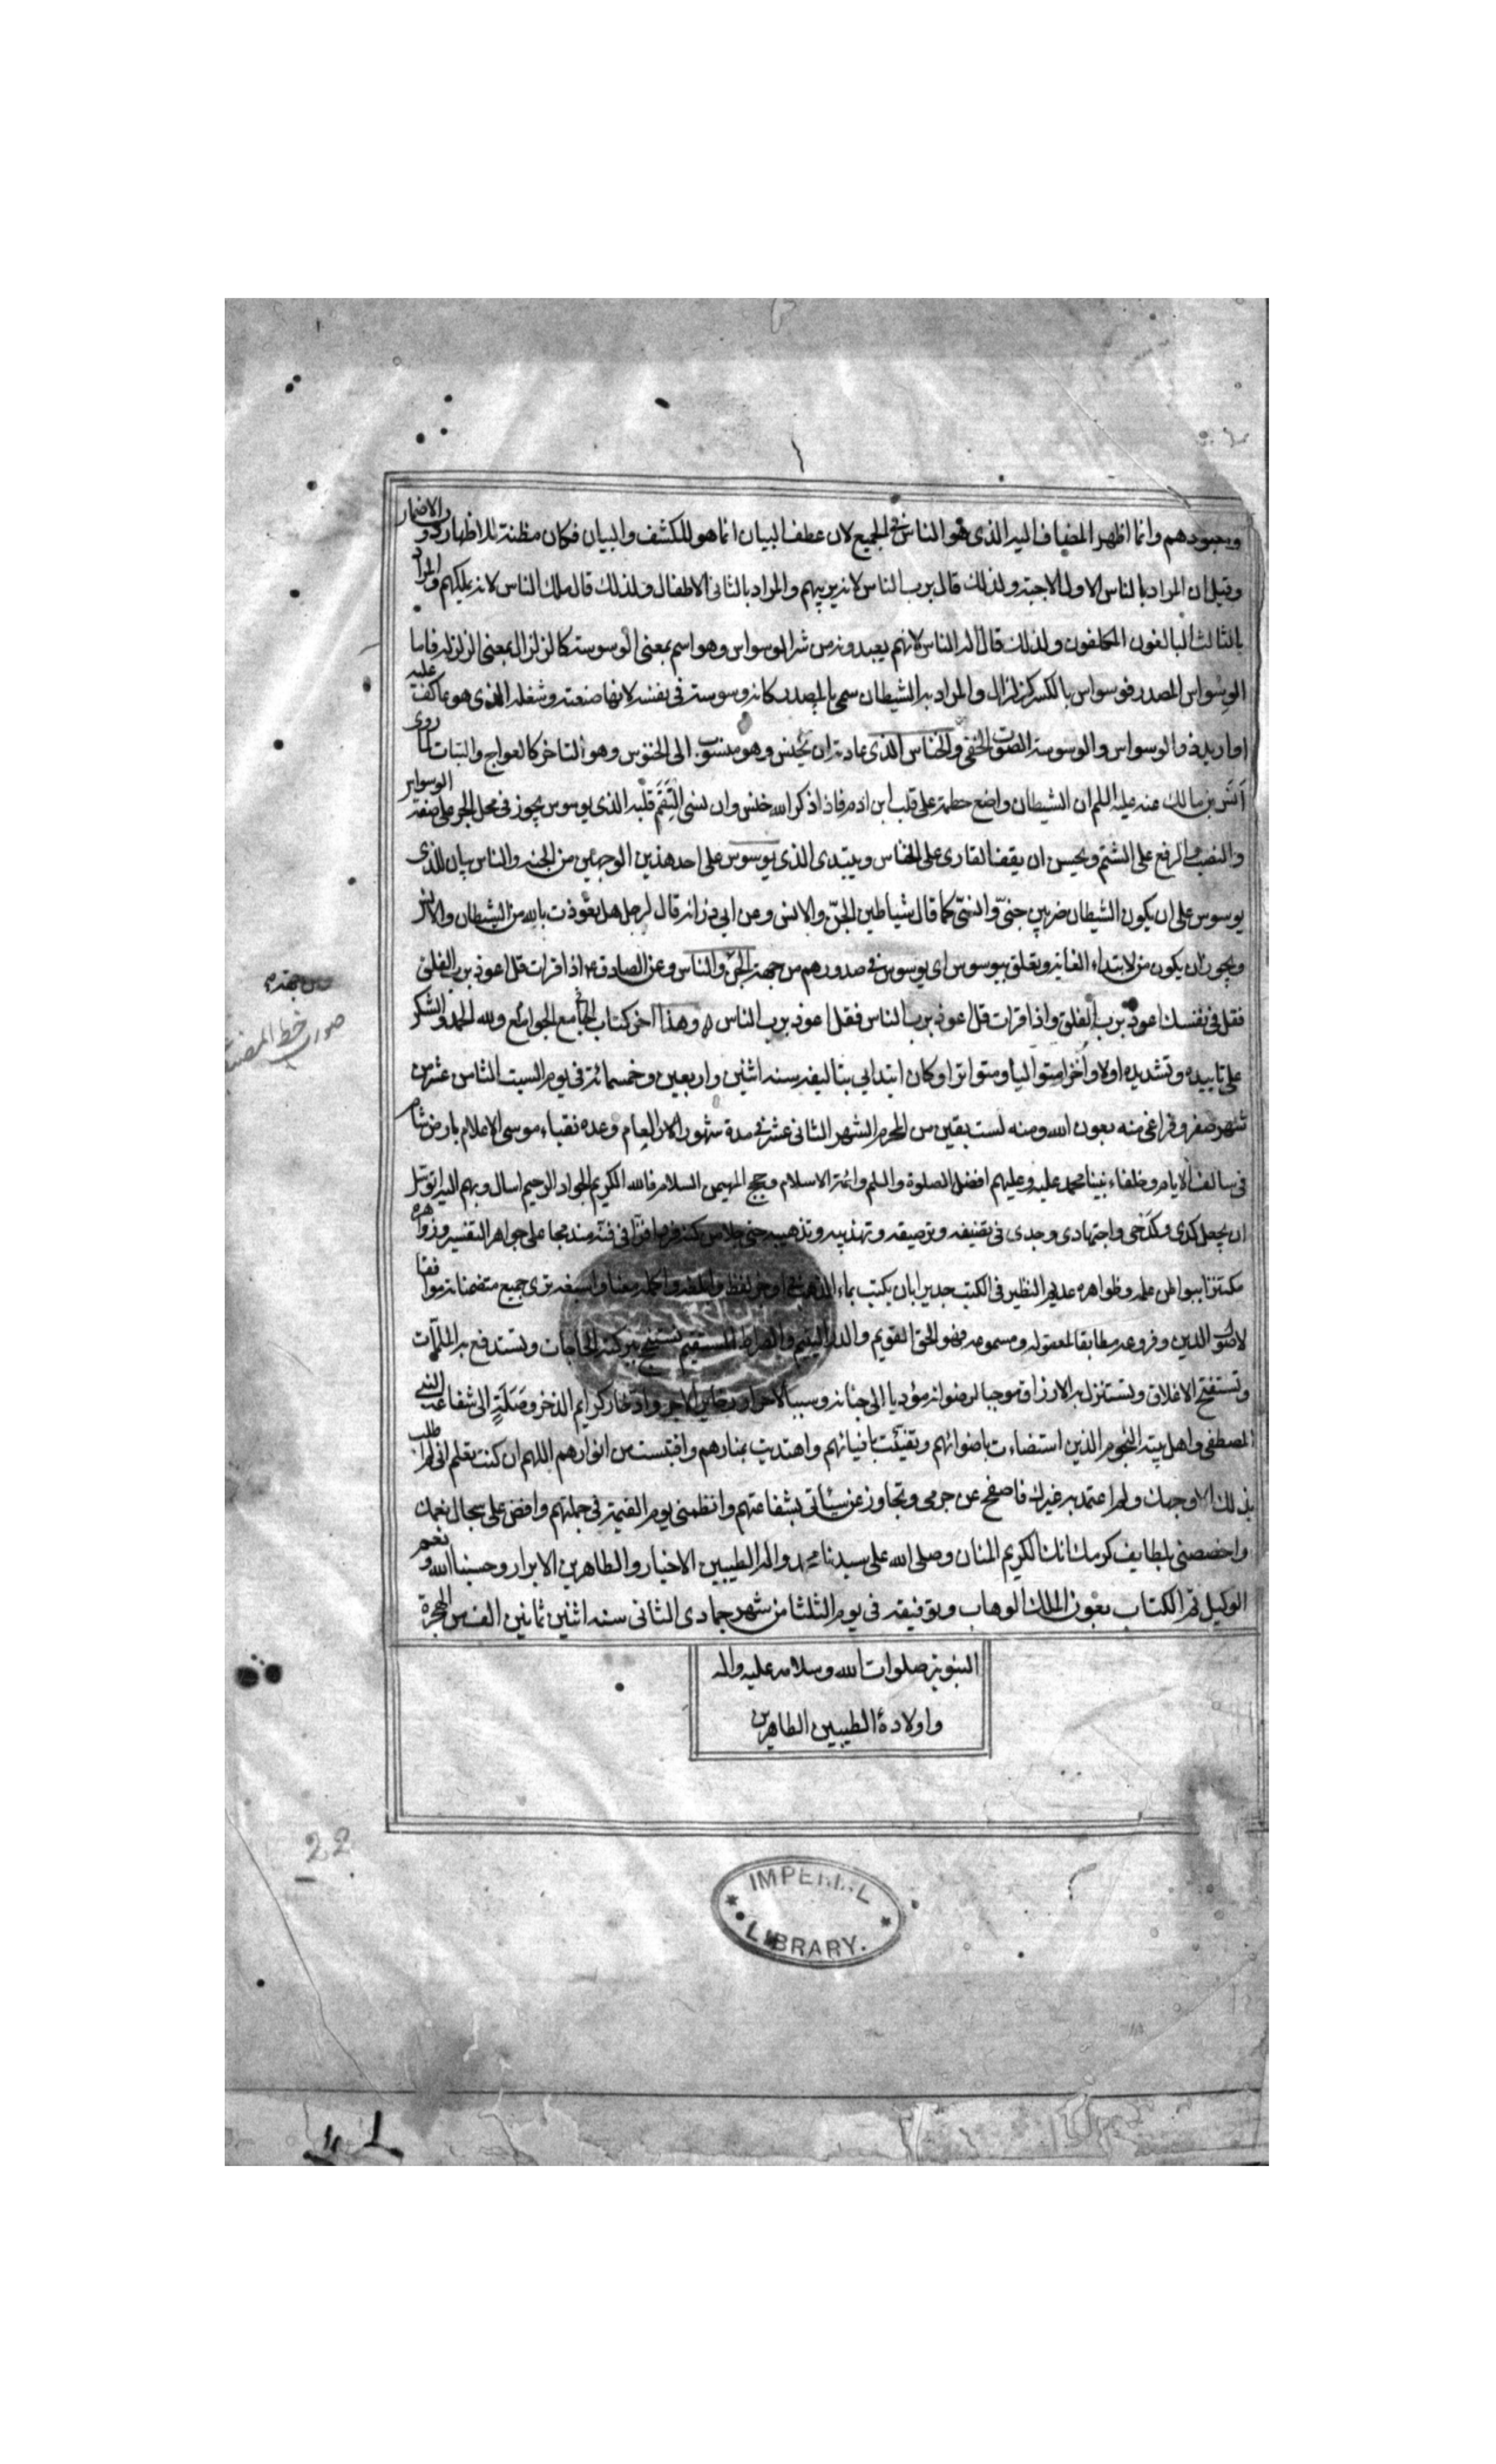 ومعبودهم وانما اظهر المضاف اليه الذى هو الناس فى الجميع لان عطف البيان انما هو للكشف والبيان فكان مظنة للاظهار دون الاضمار
وقيل ان المراد بالناس الاول الاجنة ولذلك قال برب الناس لانه يربيهم والمراد بالثانى الاطفال ولذلك قال ملك الناس لانه يملكهم والمراد
بالثالث البالغون المكلفون ولذلك قال اله الناس لانهم يعبدونه من شر الوسواس وهو اسم بمعنى الوسوسة كالزلزال بمعنى الزلزلة فاما
الوسواس المصدر فوسواس بالكسر كزلزال والمراد به الشيطان سمى بالمصدر كانه وسوسة فى نفسه لانها صنعته وشغله الذى هو عاكف عليه
او اريد ذو الوسواس والوسوسة الصوت الخفى والخناس الذى عادته ان يخنس وهو منسوب الى الخنوس وهو التاخر كالعواج والبتات لما روى
انس بن مالك عنه عليه السلم ان الشيطان واضع خطمه على قلب ابن ادم فاذا ذكر الله خنس وان نسى التقم قلبه الذى يوسوس يجوز فى محل الجر على صفة الوسواس
والنصب والرفع على الشتم ويحسن ان يقف القارى على الخناس ويبتدى الذى يوسوس على احد هذين الوجهين من الجنة والناس بيان للذى
يوسوس على ان يكون الشيطان ضربين جنىّ وانسىّ كما قال شياطين الجنّ والانس وعن ابى ذر انه قال لرجل هل تعوّذت بالله من الشيطان والانس
ويجوز ان يكون من لابتداء الغاية وتعلق بيوسوس اى يوسوس فى صدورهم من جهة الجنّ والناس وعن الصادق ع اذا قرات قل اعوذ برب الفلق
فقل فى نفسك اعوذ برب الفلق واذا قرات قل اعوذ برب الناس فقل اعوذ برب الناس وهذا اخر كتاب الجامع الجوامع ولله الحمد والشكر
على تاييده وتشديده اولا واخرا متواليا ومتواترا وكان ابتدايي بتاليفه سنه اثنين واربعين وخمسمائة فى يوم السبت الثامن عشر من
شهر صفر وفراغى منه بعون الله ومنه لست بقين من المحرم الشهر الثانى عشر فى مدة شهور العام وعدة نقباء موسى الاعلام بارض شام
فى سالف الايام وخلفاء نبينا محمد عليه وعليهم افضل الصلوة والسلم وائمة الاسلام وحجج المهيمن السلام فالله الكريم الجواد الرحيم اسال وبهم اليه اتوسل
ان يجعل كدى وكدحى واجتهادى وجدى فى تصنيفه وترصيفه وتهذيبه وتذهيبه حتى على جواهر التفسير وزواهره
مكتنزا ببواطن علمه وظواهره عديم النظير فى الكتب جديرا بان يكتب بماء الذهب ترى جميع متضمناته موافقا
لاصول الدين وفروعه مطابقا لمعقوله ومسموعه فهو الحق القويم والصراط المستقيم تستنجح ببركته الحاجات وتستدفع به الملمّات
وتستفتح الاغلاق وتستنزل به الارزاق موجبا لرضوانه مؤديا الى جنانه وسببا لاحراز الاجر وادخار كرايم الذخر وصلة الى شفاعة النبى
المصطفى واهل بيته النجوم الذين استضاءت باضوائهم وتفيّئت بافيائهم واهتديت بمنارهم واقتبست من انوارهم اللهم ان كنت تعلم انى لم اطلب
بذلك الا وجهك ولم اعتمد به غيرك فاصفح عن جرمى وتجاوز عن سيئاتى بشفاعتهم وانظمنى يوم القيمة فى جملتهم وافض على سجال نعمك
واخصصنى بلطايف كرمك انك الكريم المنان وصلى الله على سيدنا محمد واله الطيبين الاخيار والطاهرين الابرار وحسبنا الله ونعم
الوكيل تم الكتاب بعون الملك الوهاب وبتوفيقه فى يوم الثلثا من شهر جمادى الثانى سنه اثنين ثمانين الف من الهجرة
النبوية صلوات الله وسلامه عليه واله
واولاده الطيبين الطاهرين
صورت خط المصنف
22
IMPERIAL LIBRARY.